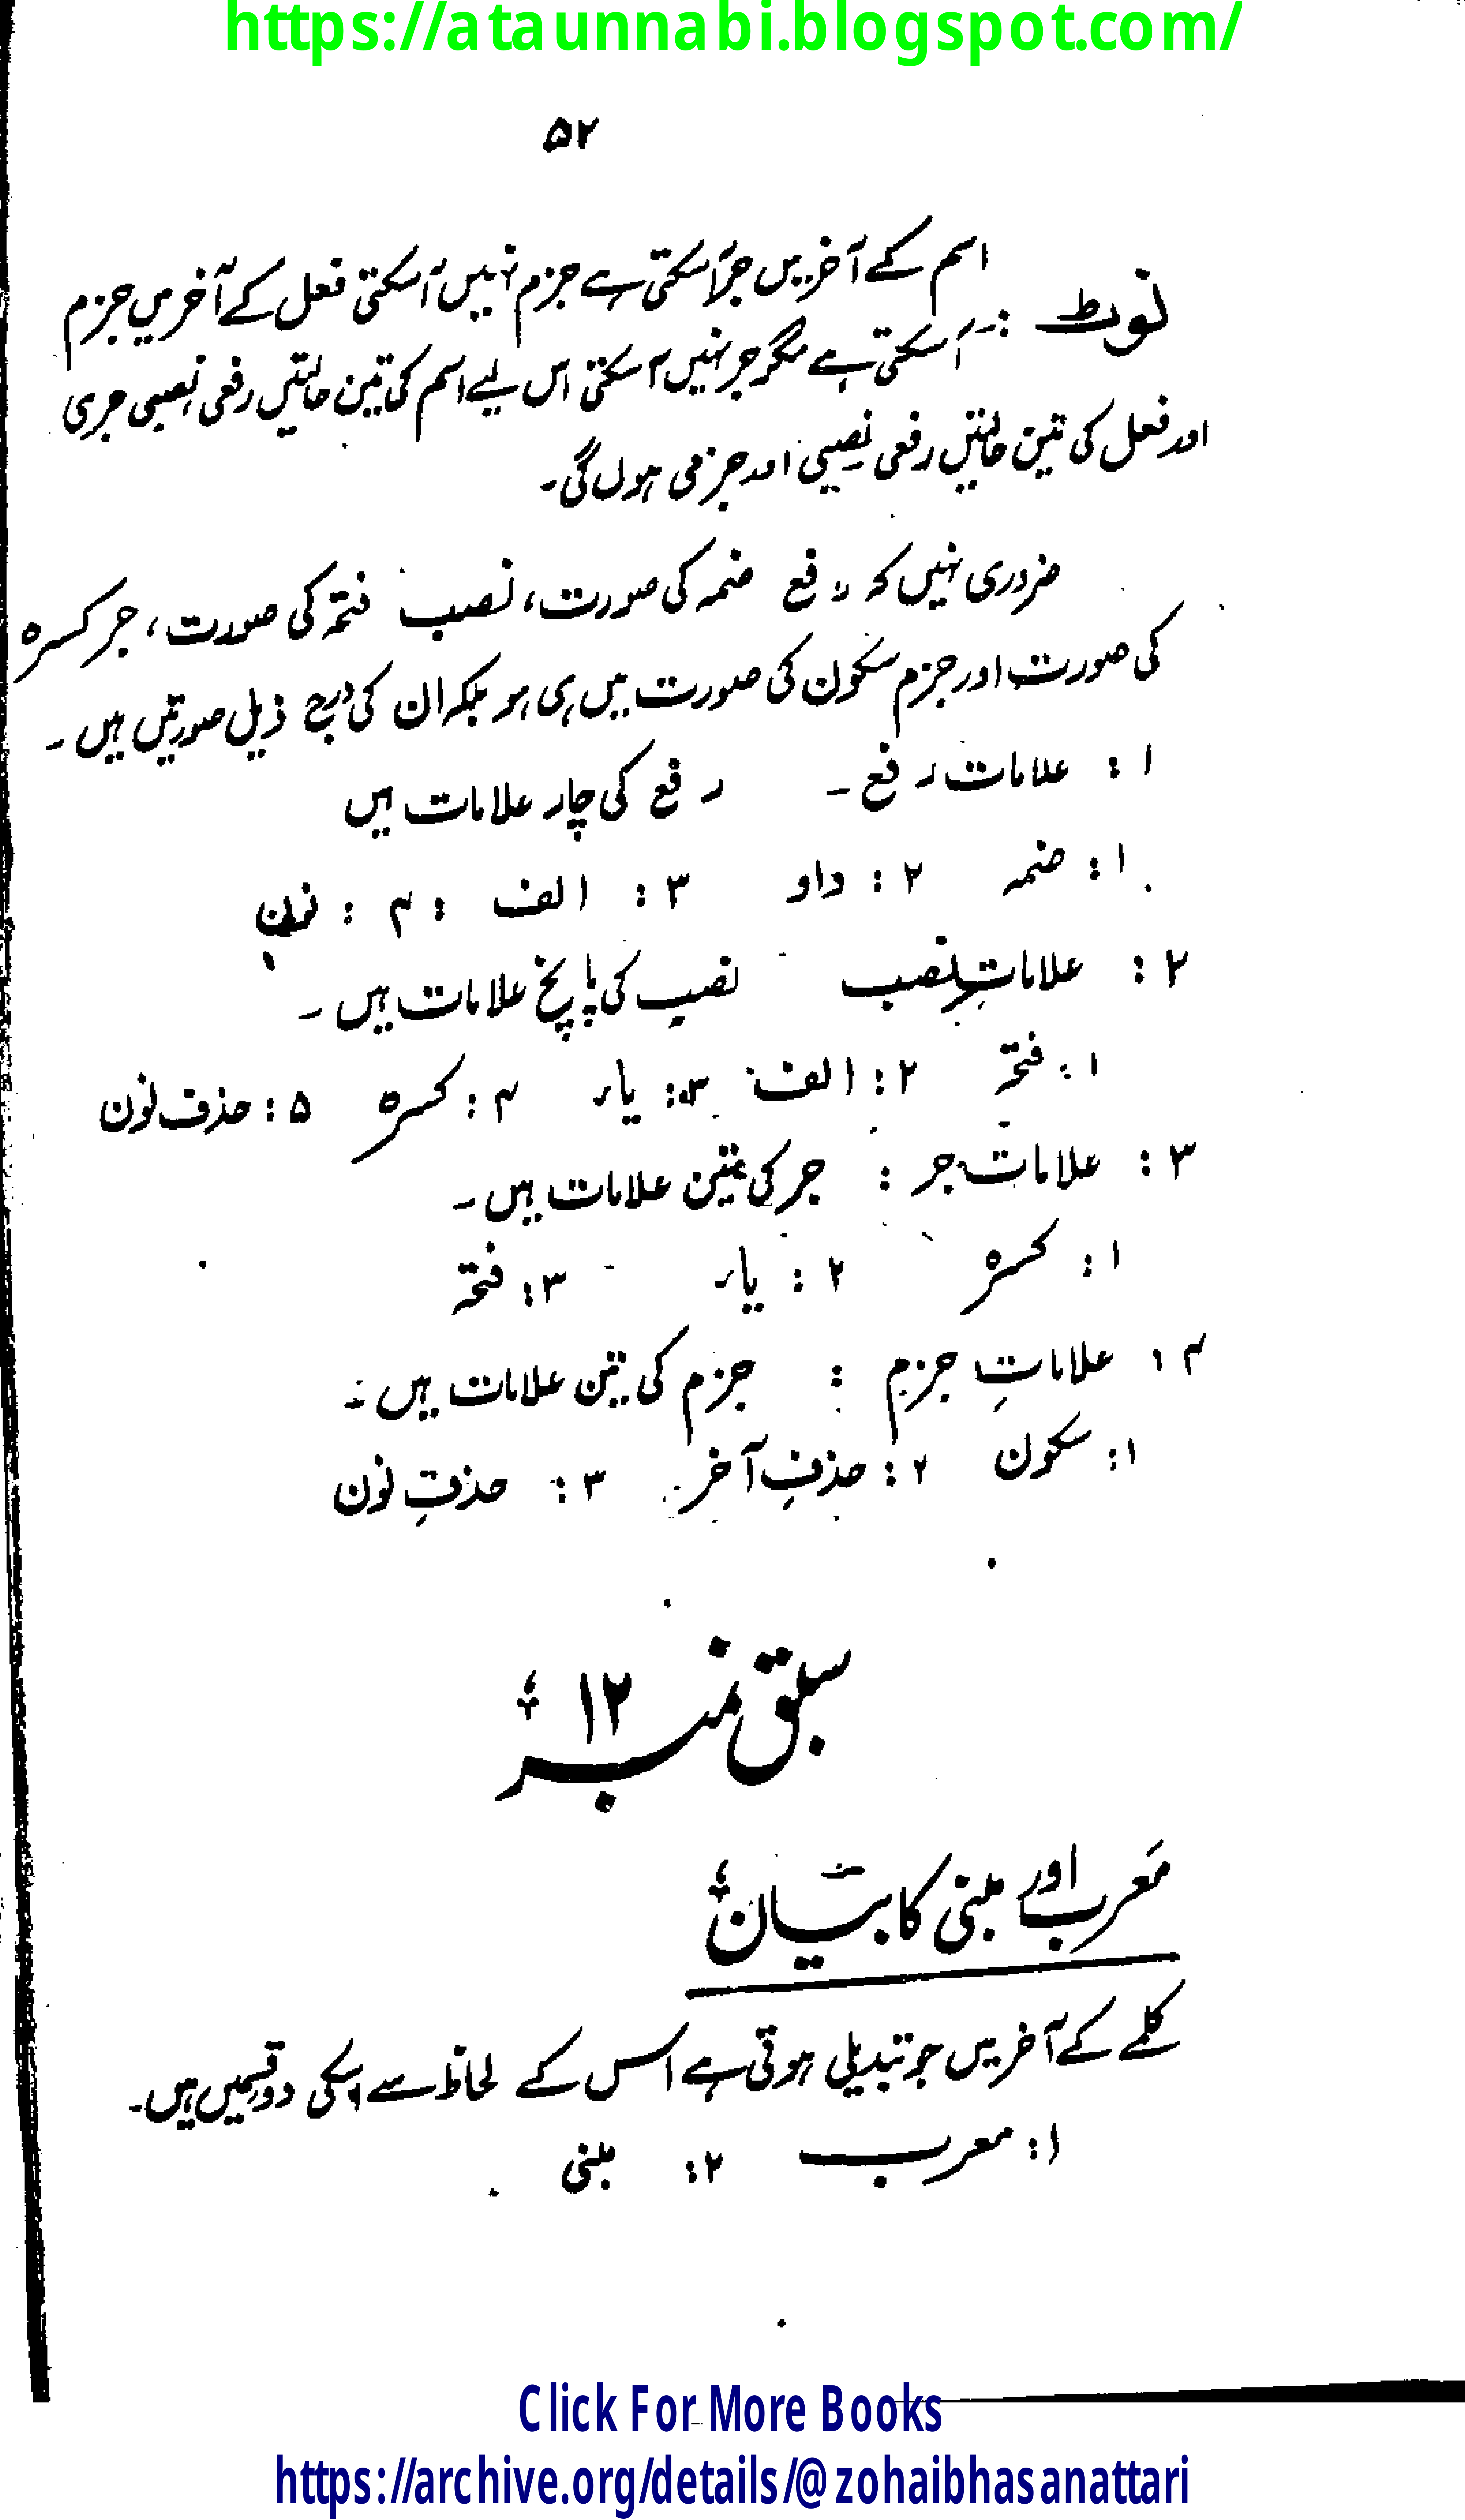 https://ataunnabi.blogspot.com/
۵۲
نوٹ :۔ اسم کے آخر میں جر آسکتی ہے جزم نہیں آسکتی فعل کے آخر میں جزم
آسکتی ہے مگر جر نہیں آسکتی اس لیے اسم کی تین حالتیں رفعی نصبی جری
اور فعل کی تین حالتیں رفعی نصبی اور جزمی ہوں گی۔
ضروری نہیں کہ رفع ضمہ کی صورت، نصب فتحہ کی صورت، جر کسرہ
کی صورت اور جزم سکون کی صورت میں ہی ہو بلکہ ان کی درج ذیل صورتیں ہیں۔
۱ : علامات رفع ۔ رفع کی چار علامات ہیں
۱ : ضمہ ۲ : واو ۳ : الف : ۴ : نون
۲ : علاماتِ نصب نصب کی پانچ علامات ہیں۔
۱ : فتحہ ۲ : الف ۳ : یاء ۴ : کسرہ ۵ : حذف نون
۳ : علاماتِ جر : جر کی تین علامات ہیں۔
۱ : کسرہ ۲ : یاء ۳ : فتحہ
۴ : علاماتِ جزم : جزم کی تین علامات ہیں۔
۱ : سکون ۲ : حذفِ آخر ۳ : حذفِ نون
سبق نمبر ۱۲
معرب اور مبنی کا بیان
کلمے کے آخر میں جو تبدیلی ہوتی ہے اس کے لحاظ سے اسکی دو قسمیں ہیں۔
۱ : معرب ۲ : مبنی
Click For More Books
https://archive.org/details/@zohaibhasanattari